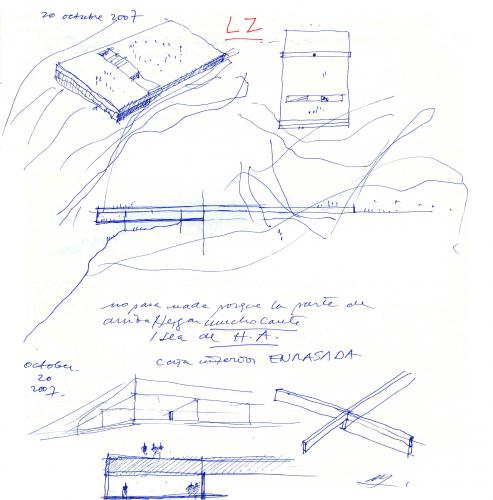 20 octubre 2007
LZ
no pasa nada porque la parte de
arriba tenga mucho canto
/ sea de H.A.
caja inferior ENRASADA
october.
20
2007.